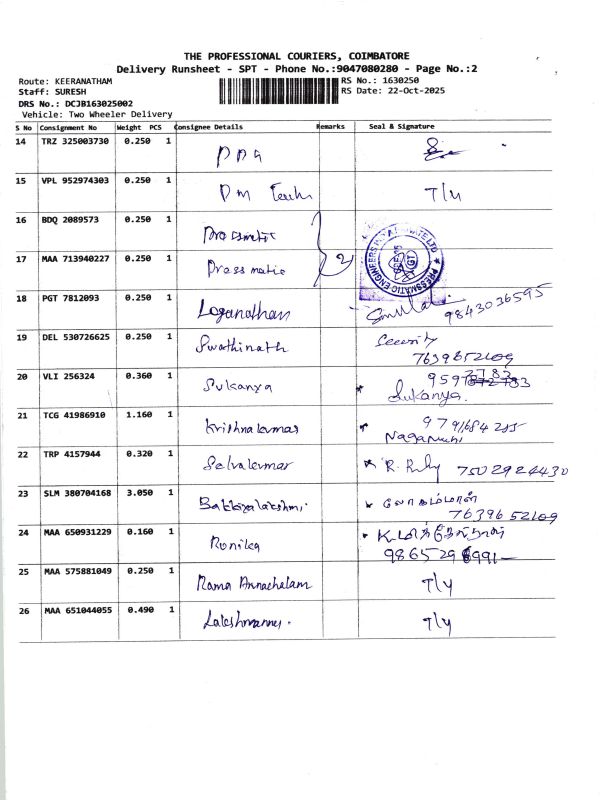 THE PROFESSIONAL COURIERS, COIMBATORE
Delivery Runsheet - SPT - Phone No.:9047080280 - Page No.:2
Route: KEERANATHAM RS No.: 1630250
Staff: SURESH RS Date: 22-Oct-2025
DRS No.: DCJB163025002
Vehicle: Two Wheeler Delivery
S No Consignment No Weight PCS Consignee Details Remarks Seal & Signature
14 TRZ 325003730 0.250 1
15 VPL 952974303 0.250 1 T/y
16 BDQ 2089573 0.250 1
17 MAA 713940227 0.250 1 Pressmatic 2
PRESSMATIC ENGINEERS
18 PGT 7812093 0.250 1 Loganathan 9843036595
19 DEL 530726625 0.250 1 Swathinath Security
7639652109
20 VLI 256324 0.360 1 Sukanya Sukanya.
21 TCG 41986910 1.160 1 Krishnakumar
22 TRP 4157944 0.320 1 Selvakumar 7502924430
23 SLM 380704168 3.050 1
7639652109
24 MAA 650931229 0.160 1 Ronika
25 MAA 575881049 0.250 1 T/y
26 MAA 651044055 0.490 1 T/y